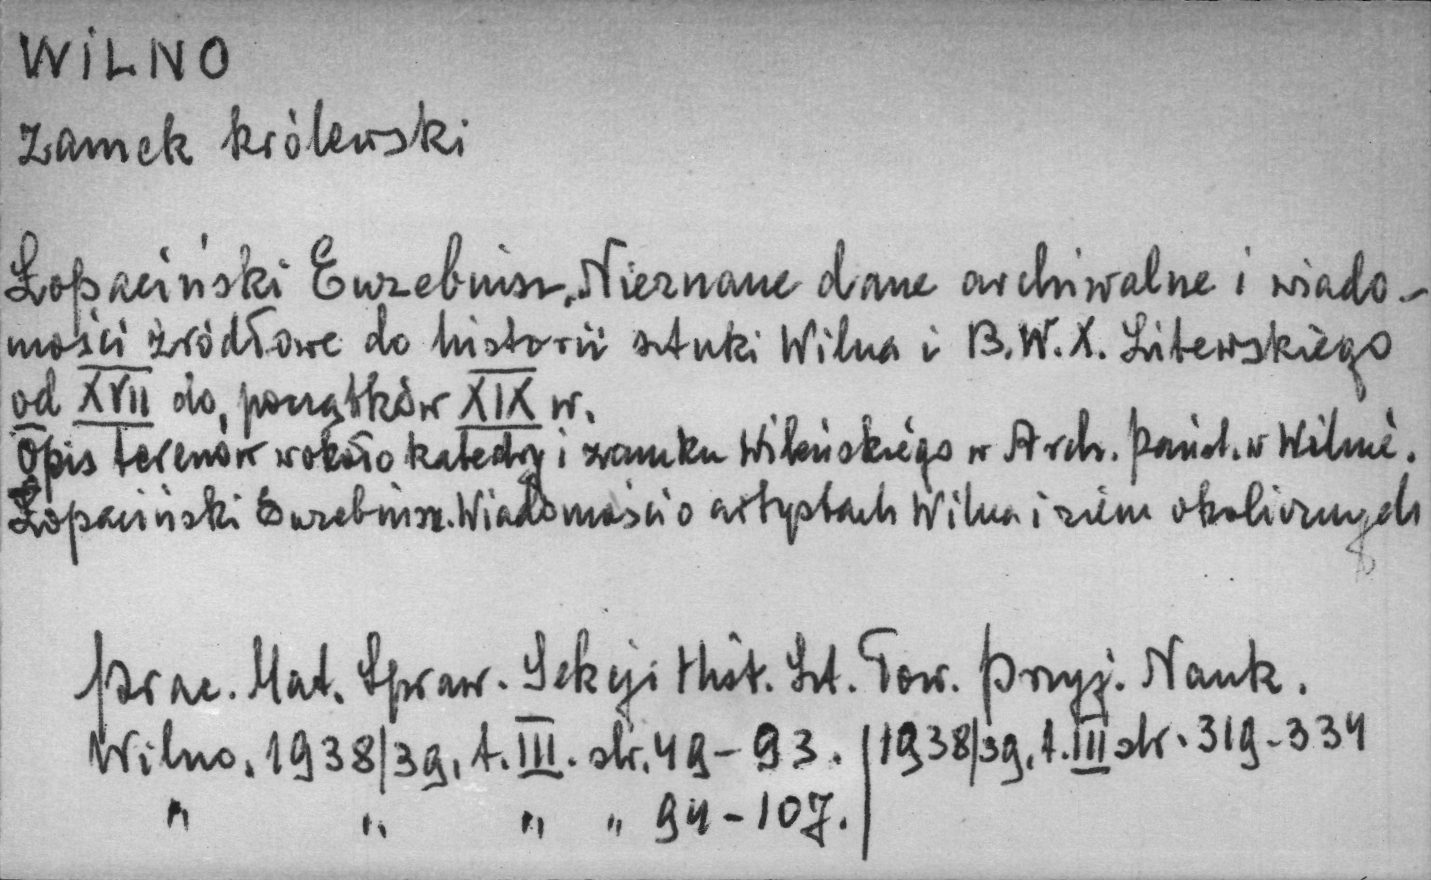 WILNO
Zamek królewski
Łopaciński Euzebiusz, Nieznane dane archiwalne i wiado-
mości źródłowe do historii sztuki Wilna i B.W.X. Litewskiego
od XVII do początków XIX w.
Opis terenów wokoło katedry i zamku Wileńskiego w Arch. Państ. w Wilnie.
Łopaciński Euzebiusz. Wiadomości o artystach Wilna i ziem okolicznych
Prac. Mat. Spraw. Sekcji Hist. Szt. Tow. Przyj. Nauk.
Wilno. 1938/39, t. III. str. 49-93. | 1938/39, t. III str. 319-334
" " " " 94-107.